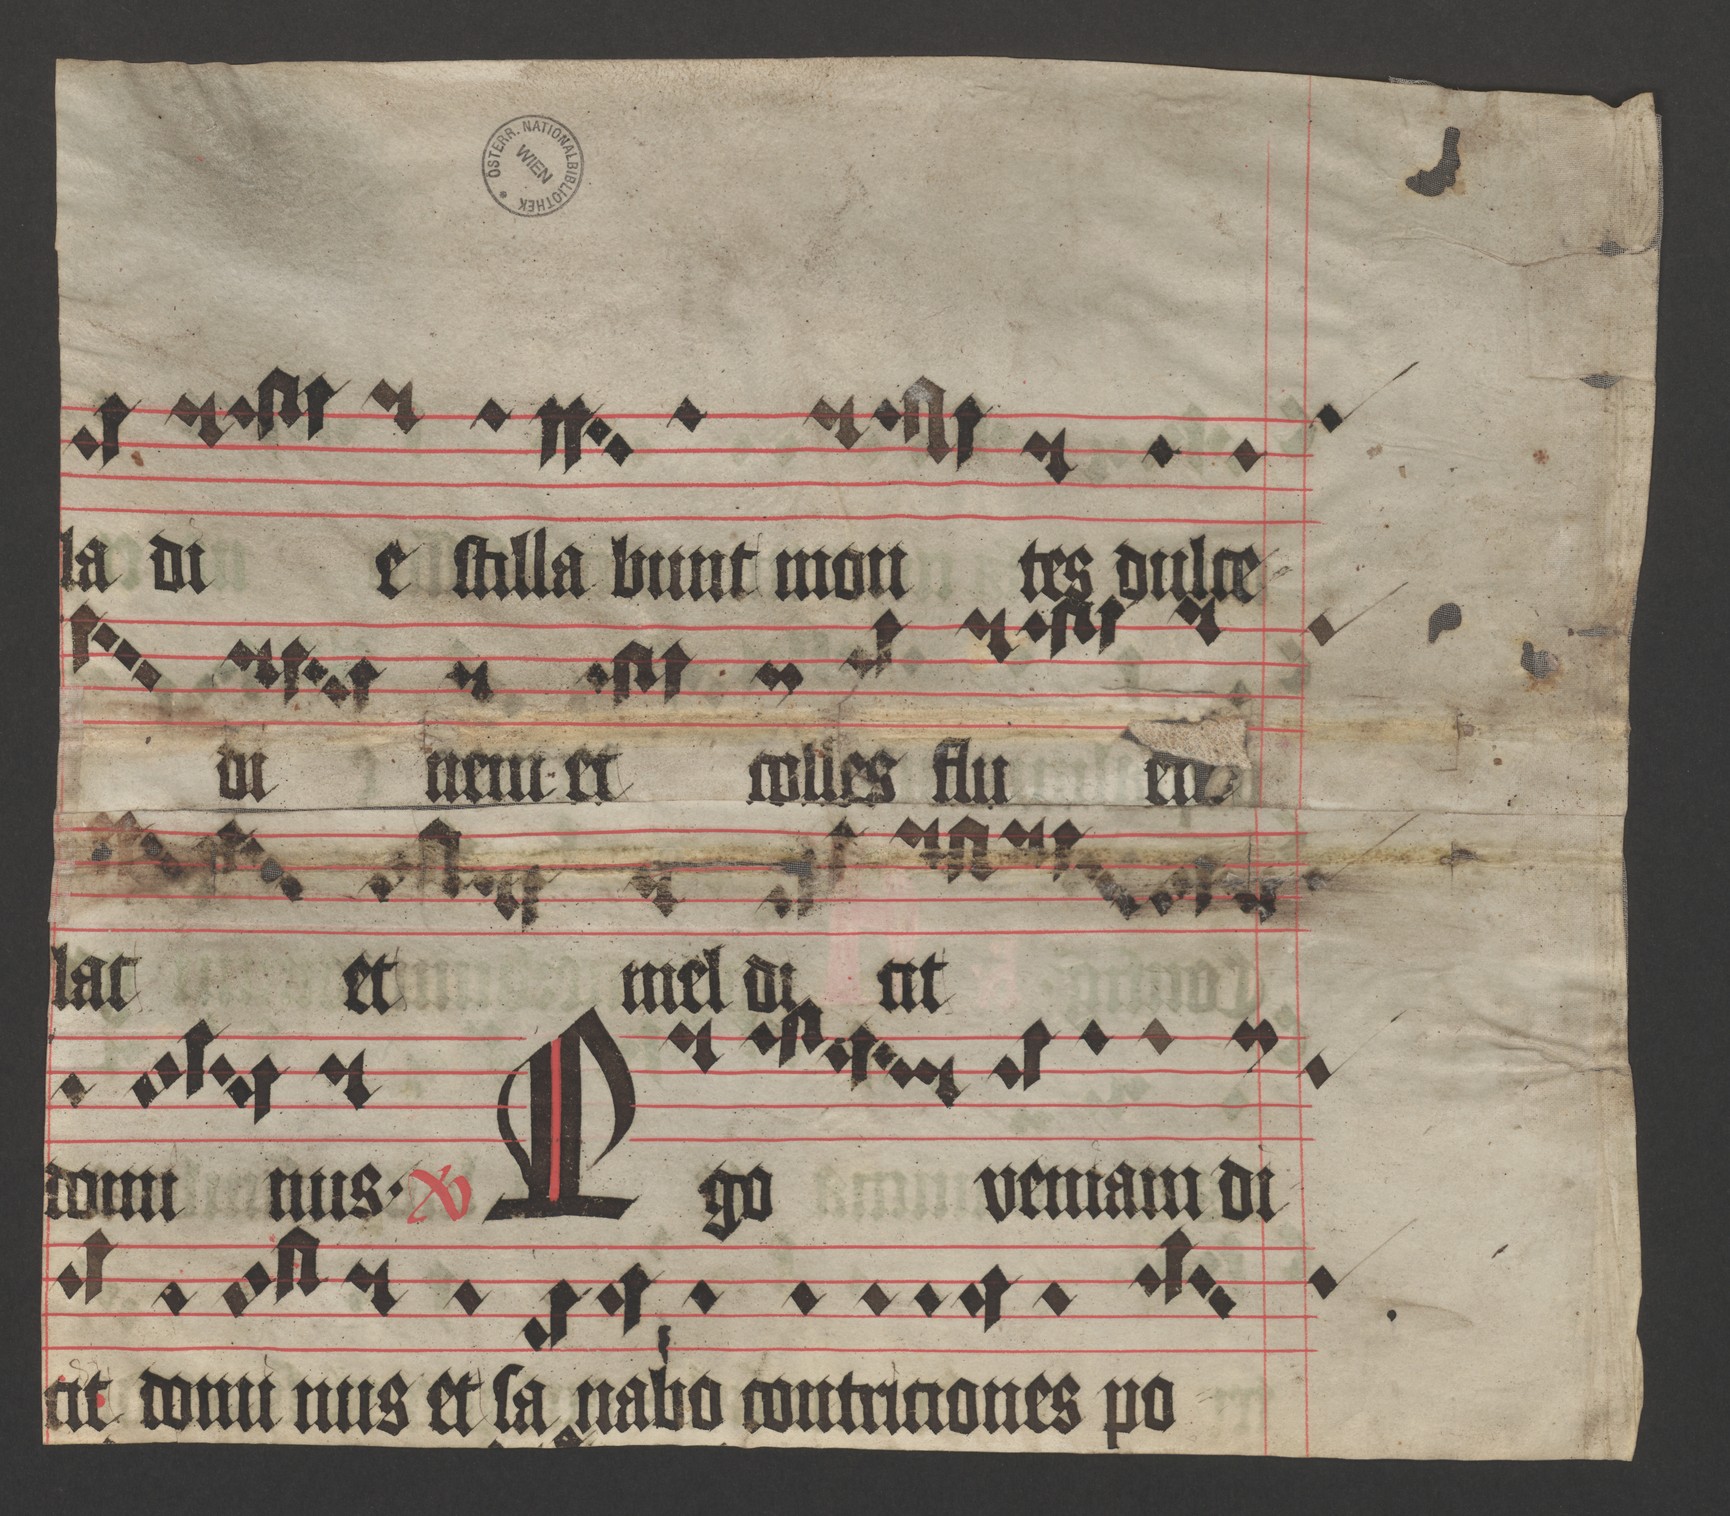 ÖSTERR. NATIONALBIBLIOTHEK WIEN
la di e stilla bunt mon tes dulce
di nem et colles flu en
lac et mel di cit
domi nus. Ego veniam di
cit domi nus et sa nabo contriciones po